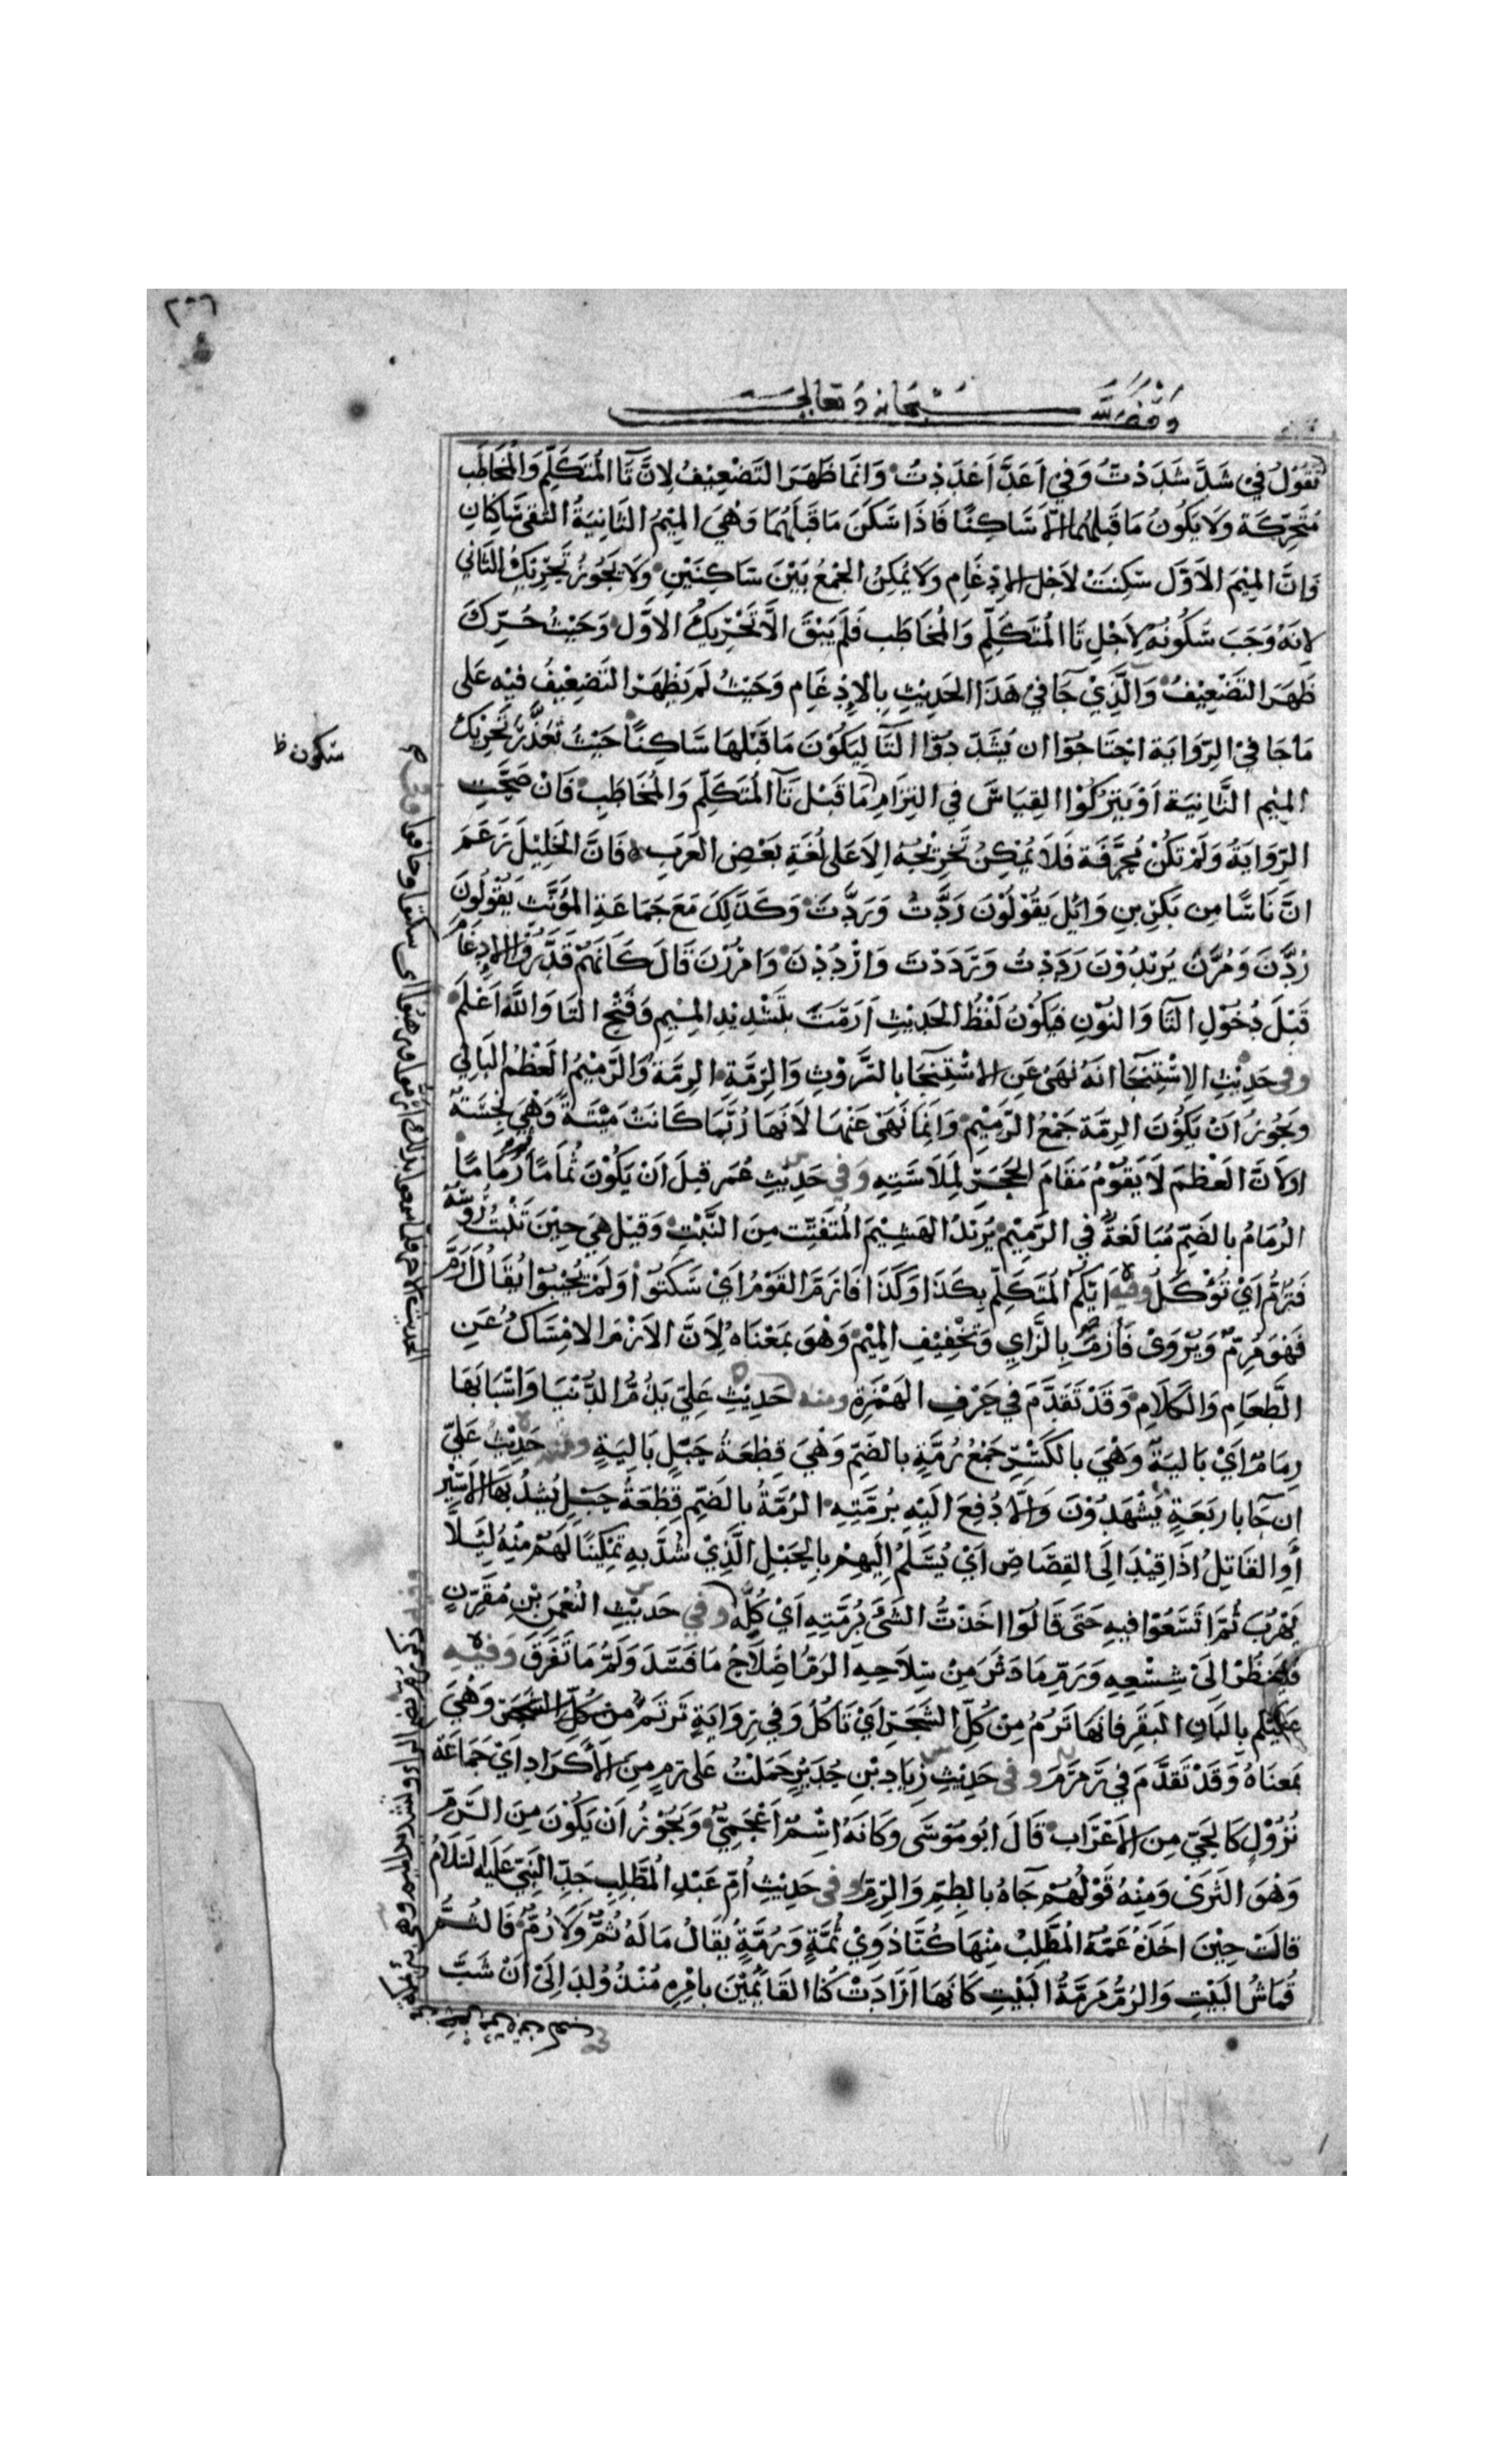 ٢٠٦
وقف لله سبحانه وتعالى
تَقُوْلُ فِيْ شَدَّ شَدَدْتُ وَفِيْ اَعَدَّ اَعْدَدْتُ وَانَّمَا ظَهَرَ التَضْعِيْفُ لِانَّ تَآ المُتَكَلِّمِ وَالْمُخَاطَبِ
مُتَحَرِّكَة وَلَا يَكُونُ مَا قَبْلَهُمَا الّاَ سَاكِنًا فَاذَا سَكَنَ مَا قَبْلَهُمَا وَهْيَ المِيْمُ الثَانِيَةُ التَقَى سَاكِنَانِ
فَاِنَّ المِيْمَ الاَوَّلَ سَكِنَتْ لاَجْلِ الادْغَامِ وَلَا يُمْكِنُ الجَمْعُ بَيْنَ سَاكِنَيْنِ وَلَا يَجُوْزُ تَحْرِيْكُ الثَّانِي
لِانَهُ وَجَبَ سَكُونُهُ لِاَجْلِ تَا المُتَكَلِّمِ وَالْمُخَاطَبِ فَلَمْ يَبْقَ الَّا تَحْرِيْكُ الاَوَّلِ وَحَيْثُ حُرِّكَ
ظَهَرَ التَضْعِيْفُ وَالَّذِيْ جَآ فِيْ هَذَا الحَدِيْثِ بِالاِدْغَامِ وَحَيْثُ لَمْ يَظْهَرِ التَضْعِيْفُ فِيْهِ عَلَى
مَا جَا فِيْ الرِّوَايَة احْتَاجُوْا ان يُشَدِّدُوْا التَآ لِيَكُوْنَ مَا قَبْلَهَا سَاكِنًا حَيْثُ تَعَذَّرَ تَحْرِيْكُ
المِيْمِ الثَّانِيَة اَوْ يَتِرُكُوْا القِيَاسَ فِي التِزَامِ مَا قَبْلَ تَآ المُتَكَلِّمِ وَالْمُخَاطَبِ فَانْ صَحَّتِ
الرِّوَايَةُ وَلَمْ تَكُنْ مُحَرَّفَة فَلَا يُمْكِنُ تَخْرِيْجُهُ الِاَ عَلَى لُغَةِ بَعْضِ العَرَبِ فَانَّ الخَلِيْلَ زَعَمَ
انَّ نَاسًا مِن بَكْرِ بنِ وَائِل يَقُوْلُوْنَ رَدَّتُ وَرَدَّتَ وَكَذَلِكَ مَعَ جَمَاعَةِ المُؤَنَّثِ يَقُوْلُونَ
رُدَّنَ وَمُرَّنَ يُرِيْدُوْنَ رَدَدْتُ وَرَدَدْتَ وَارْدُدْنَ وَامْرُرْنَ قَالَ كَانَهُمْ قَدَّرُوْا الادغَامَ
قَبْلَ دُخُوْلِ التَآ وَالنوْنِ فَيَكُوْنُ لَفْظُ الحَدِيْثِ اَرَمَّتَ بتَشْدِيْدِ المِيْمِ وَفَتْحِ التَا وَاللهُ اَعْلَمُ
وفى حَدِيْثِ الاِسْتِنْجَا انَهُ نَهَى عَنِ الاسْتِنْجَا بالرَّوْثِ وَالرِّمَّةِ الرِمَّةُ وَالرَّمِيْمُ العَظْمُ البَالِي
وَيَجُوْزُ انْ يَكُوْنَ الرِمَّة جَمْعُ الرَّمِيْمِ وَانِمَا نَهَىْ عَنْهَا لَانَهَا رُبَّمَا كَانَتْ مَيْتَةً وَهْيَ نَجِسَةٌ
اوْلَانَّ العَظْمَ لَا يَقُوْمُ مَقَامَ الحَجَرِ لِمَلَاسَتِهِ وَفي حَدِيْثِ عُمَر قبلَ اَنْ يَكُوْنَ ثُمَامًا ثُمَّ رُمَامًا
الرُمَامُ بالضَمِّ مُبَالَغةٌ فِي الرَّمِيْمِ يُرِيْدُ الهَشِيْمَ المُتَفَتِّت مِنَ النَّبْتِ وَقِيْلَ هِيَ حِيْنَ تَنْبُتُ رُؤُسُهُ
فَتُرَمُّ اَيْ تُؤْكَلُ وفيهِ ايُّكُم المُتَكَلِّم بِكَذَا وَكَذَا فَارَمَّ القَوْمُ ايْ سَكَتُوْا وَلَمْ يُجِيْبُوْا يُقَالُ اَرَمَّ
فَهْوَ مُرِمٌّ وَيُرْوَىْ فَأَزَمَ بِالزَّايِ وَتَخْفِيْفِ المِيْمِ وَهْوَ بمَعْنَاهُ لِاَنَّ الاَزْمَ الامْسَاكُ عَنِ
الطَّعَامِ وَالكَلَامِ وَقَدْ تَقَدَّمَ فِي حَرْفِ الهَمْزَةِ ومنه حَدِيْثِ عَلِيّ يَذُمُّ الدُّنْيَا وَاسْبَابَهَا
رِمَامٌ ايْ بَاليَةٌ وَهْيَ بالكَسْرِ جَمْعُ رُمَّةٍ بالضَمِّ وَهْيَ قِطْعَةُ حَبْلٍ بَالِيَةٍ ومنه حَدِيْثُ عَلِيّ
ان جَآ باربَعَةٍ يَشْهَدُوْنَ وَالَّا دُفِعَ الَيْهِ بُرمَّتِهِ الرُمَّةُ بالضَمِّ قِطْعَةُ حَبْلٍ يُشَدُّ بهَا الاَسِيْرُ
أَوِ القَاتِلُ اذَا قِيْدَ الَى القِصَاصِّ ايْ يُسَلَّمُ اِلَيهِمْ بِالحَبْلِ الَّذِيْ شُدَّ بهِ تَمْكِيْنًا لَهُمْ مِنْهُ لِيَلَّا
يَهْرُبَ ثُمَّ اتَّسَعُوْا فيهِ حَتَّى قَالُوْا اخَذْتُ الشَىْءَ بِرُمَّتِهِ اَيْ كُلَّهُ وفي حَديْثِ النُعْمَنِ بْنِ مُقَرِّنٍ
فَلْيَنْظُرْ الَىْ شِسْعِهِ وَرَمِّ مَا دَثَرَ مِنْ سِلَاحِهِ الرَمُّ اصْلَاحُ مَا فَسَدَ وَلَمُّ مَا تَفَرَّقَ وَفيه
عَلَيْكُم بِالبَانِ البَقَرِ فانَهَا تَرُمُ مِنْ كُلِّ الشَجَرِ ايْ تَاكُلُ وَفِي رِوَايَةٍ تَرتَمُّ مِن كُلِّ الشَجَرِ وَهْيَ
بمَعنَاهُ وَقَدْ تَقَدَّمَ فِي رَمرَمَ وفى حَدِيْثِ زِيَادِ بْنِ حُدَيْرٍ حَمَلْتُ عَلى رَمٍ مِنَ الاَكْرَادِ ايْ جَمَاعَة
نُزُوْلٍ كَالحَيِّ مِنَ الاَعْرَابِ قَالَ ابُو مُوْسَى وَكَانَهُ اسْمٌ اَعْجَمِيٌّ وَيَجُوْزُ اَنْ يَكُوْنَ مِنَ الرَّمِّ
وَهْوَ الثرَىْ وَمِنْهُ قَوْلُهُمْ جَآهُ بالطِمِّ وَالرِمِّ وفى حَدِيْثِ اُمِّ عَبْدِ المُطَّلِبِ جَدِّ النَبِيِّ عَلَيْهِ السَلَامُ
قالَتْ حِيْنَ اخَذَهُ عَمَّهُ المُطَّلِبُ مِنْهَا كُنَّا ذَوِيْ ثُمَّةٍ وَرُمَّةٍ يُقَالُ مَا لَهُ ثُمٌّ وَلَا رُمٌّ فَالثُمُّ
قُمَاشُ البَيْتِ وَالرُمُّ مَرَمَّةُ البَيْتِ كَانَهَا اَرَادَتْ كُنا القَائِمِيْنَ بامْرِهِ مُنْذُ وُلِدَ اِلَىْ اَنْ شَبَّ
سكون ظ